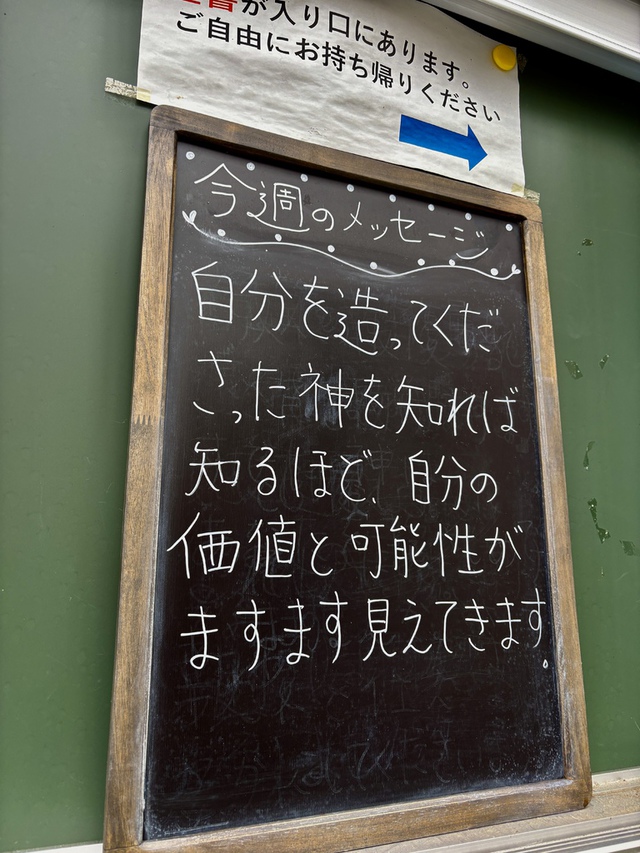 が入り口にあります。
ご自由にお持ち帰りください
今週のメッセージ
自分を造ってくだ
さった神を知れば
知るほど、自分の
価値と可能性が
ますます見えてきます。